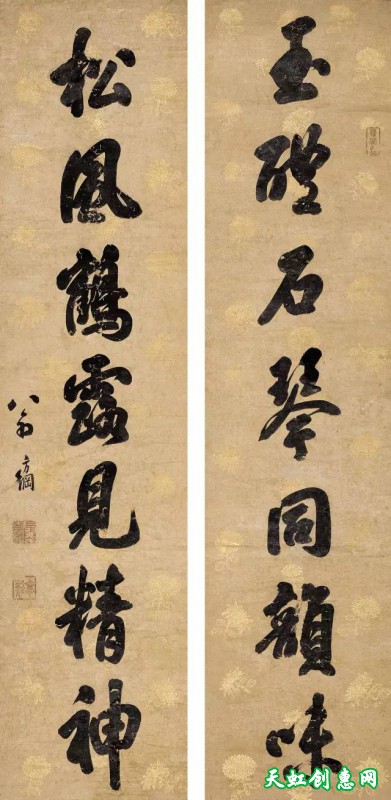 玉石琴同韻味
松風鶴露見精神
翁方綱
天虹创惠网